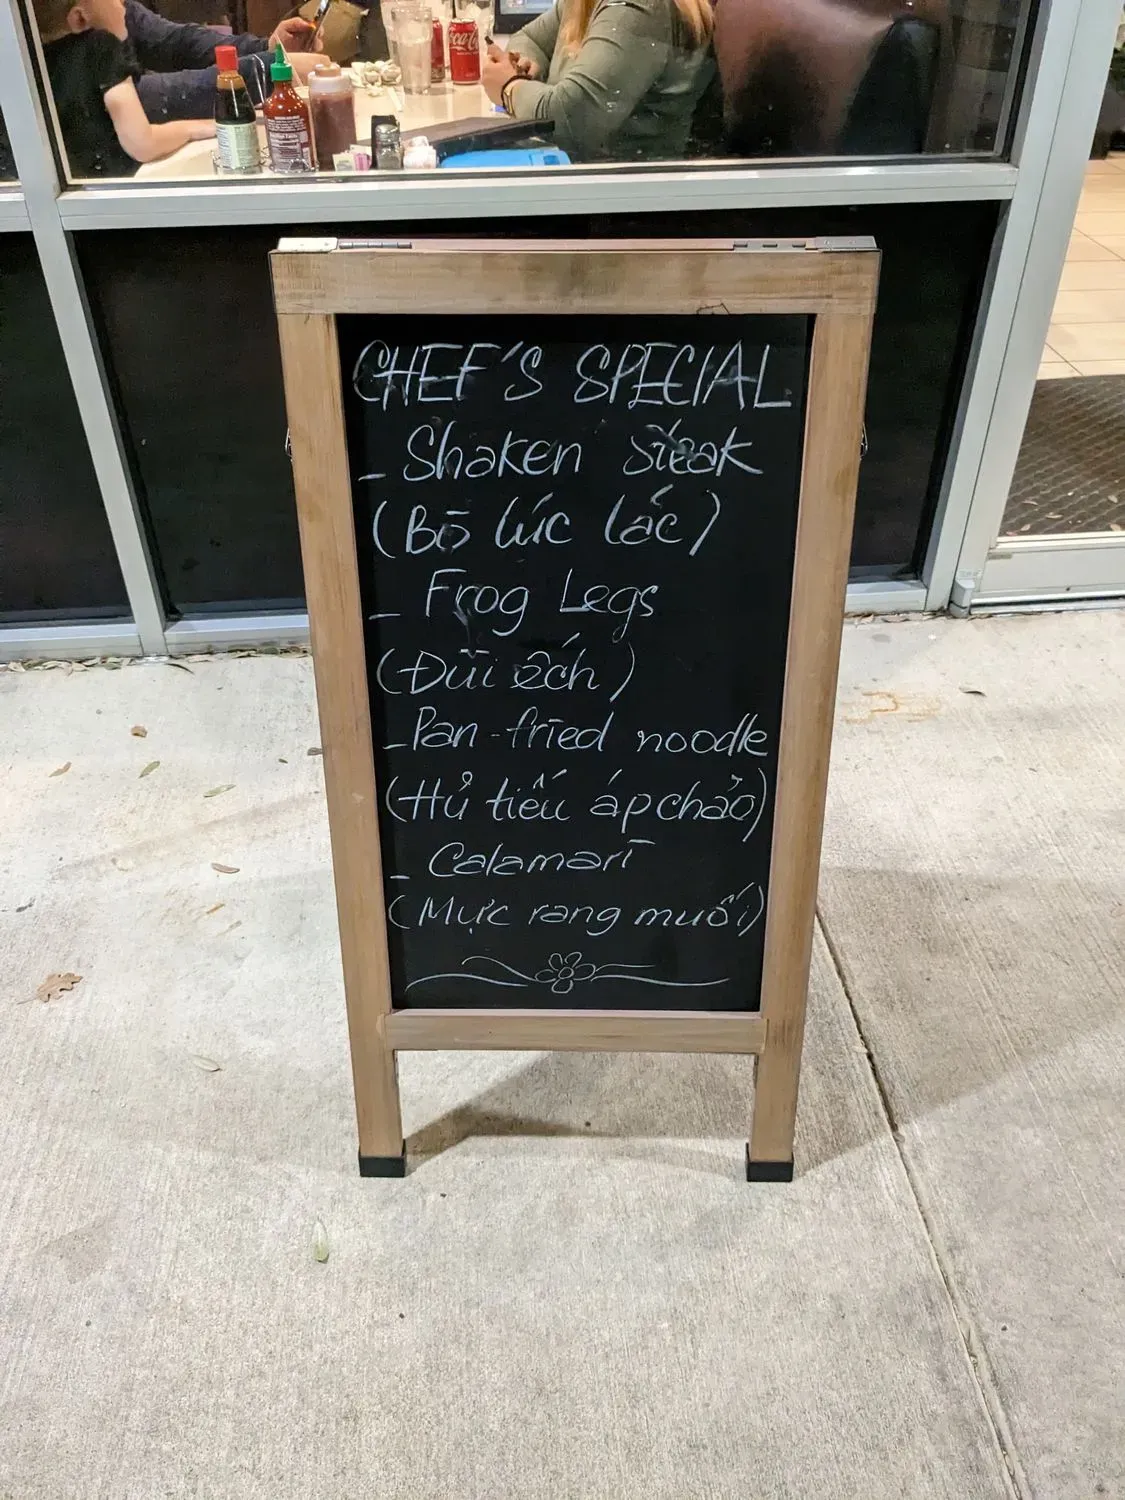 Coca-Cola
CHEF'S SPECIAL
- Shaken steak
(Bò lúc lắc)
- Frog Legs
(Đùi ếch)
-Pan-fried noodle
(Hủ tiếu áp chảo)
- Calamari
(Mực rang muối)